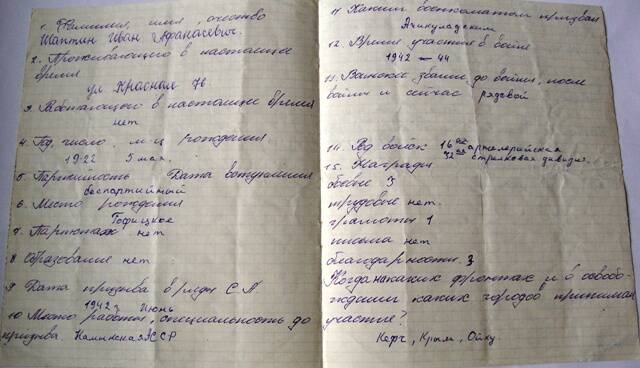 1. Фамилия, имя, очество
Шаптин Иван Афанасевич.
2. Проживающего в настоящее
время
ул Красная 76
3 Работающего в настоящие время
нет
4 Год, число, м-ц рождения
1922 5 мая.
5 Партийность Дата вступления
беспартийный
6. Место рождения
7. Партстаж нет
8 Образование нет
9 Дата призыва в ряды С.А.
1942 г Июнь
10 Место работы, специальность до
призыва. АССР
11 Каким военкоматом призван
Ачикуладским
12. Время участие в войне
1942 - 44
13. Воинское звание до войны, после
войны и сейчас рядвой
14. Род войск 16 ая артилерийская
72 ая стрелковая дивидия.
15. Награды
боевые 3
трудовые нет.
грамоты 1
письма нет
благодарности 3
Когда на каких фронтах и в освобо-
ждении каких городов принимал
участие?
Керч, Крым,